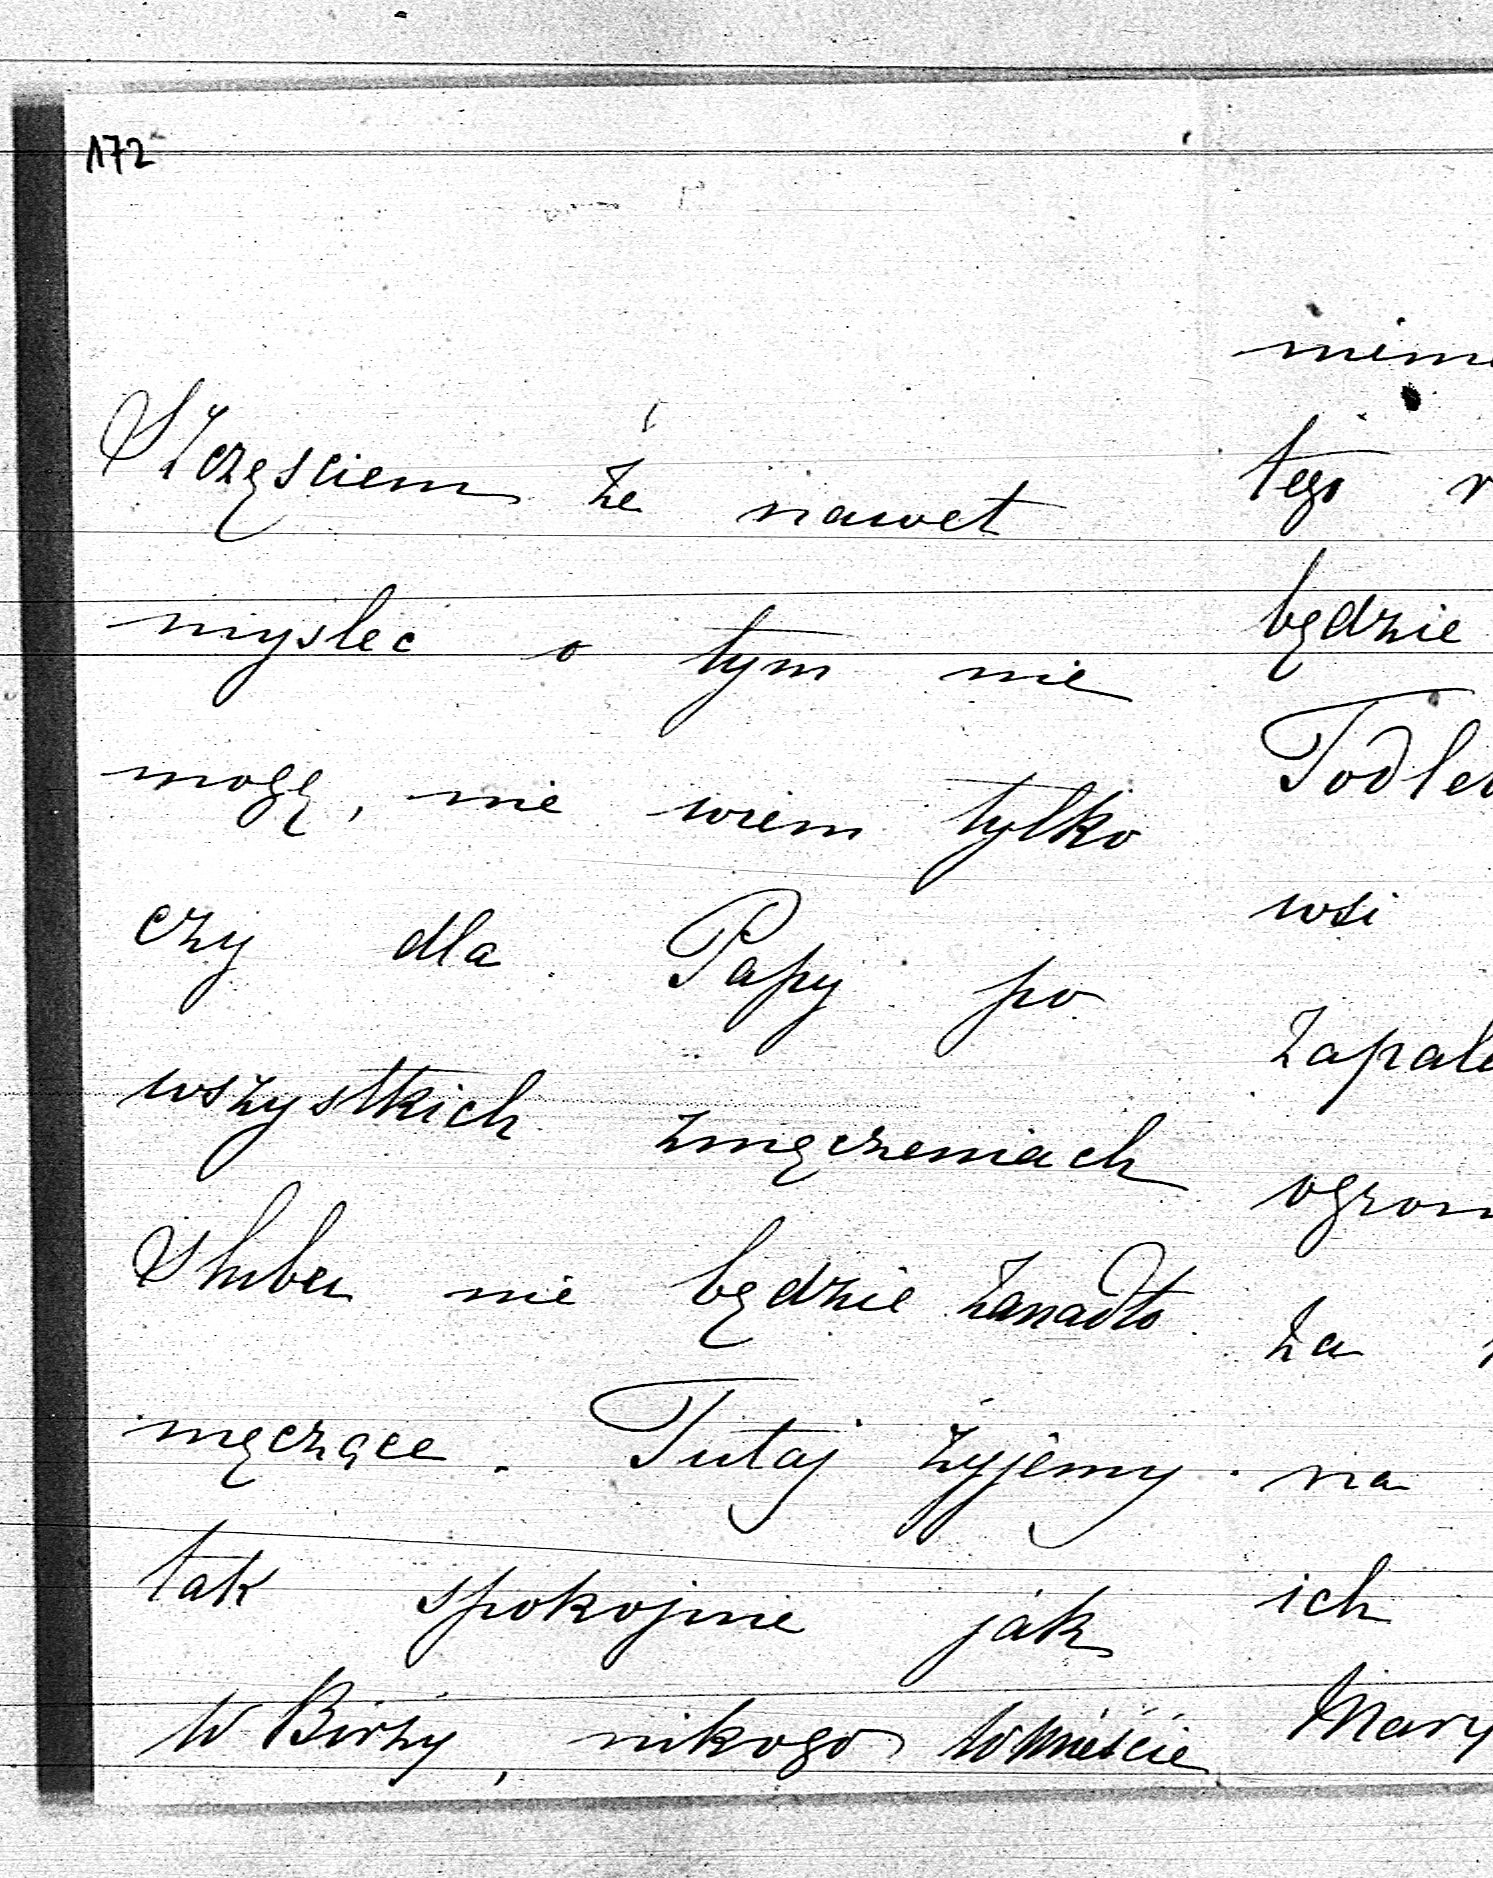 172
Szczęsciem że nawet
mysleć o tym nie
mogę, nie wiem tylko
czy dla Papy po
wszystkich zmęczeniach
Slubu nie będzie zanadto
męczące. Tutaj żyjemy
tak spokojnie jak
w Birży, nikogo w mieście
tego
będzie
wsi
za
na
ich
Mary